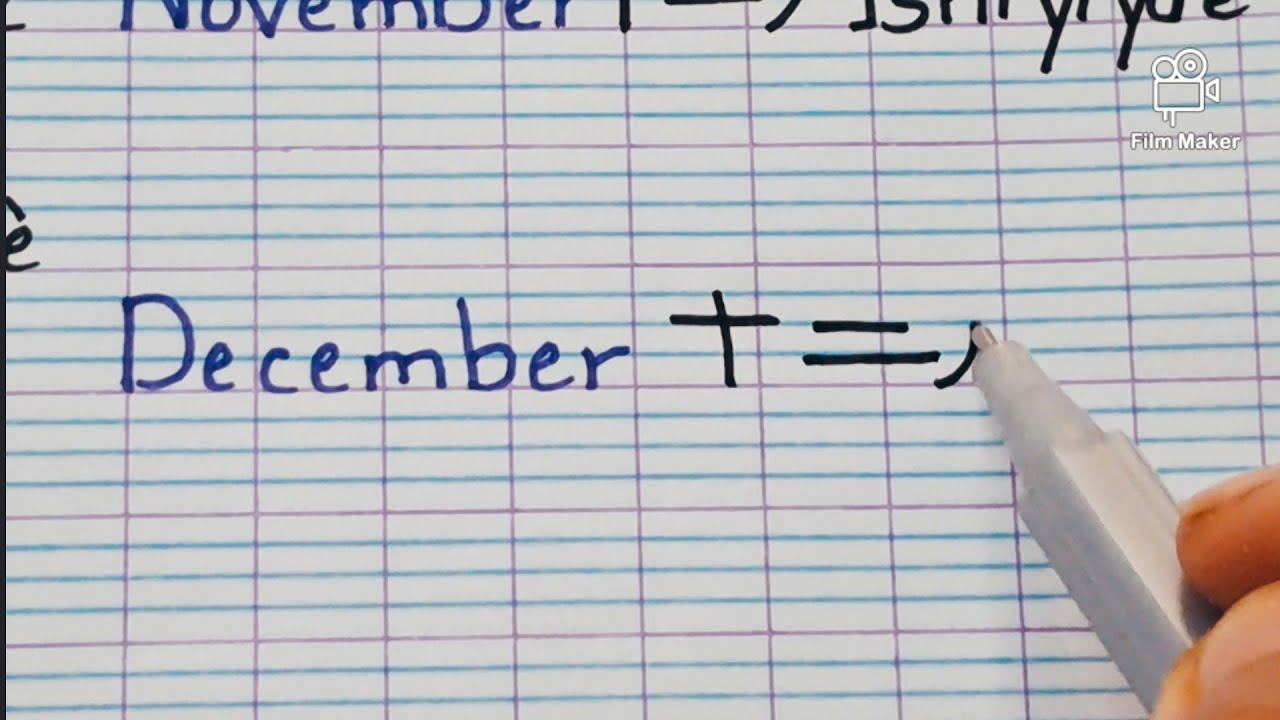 November
Film Maker
è
December † =